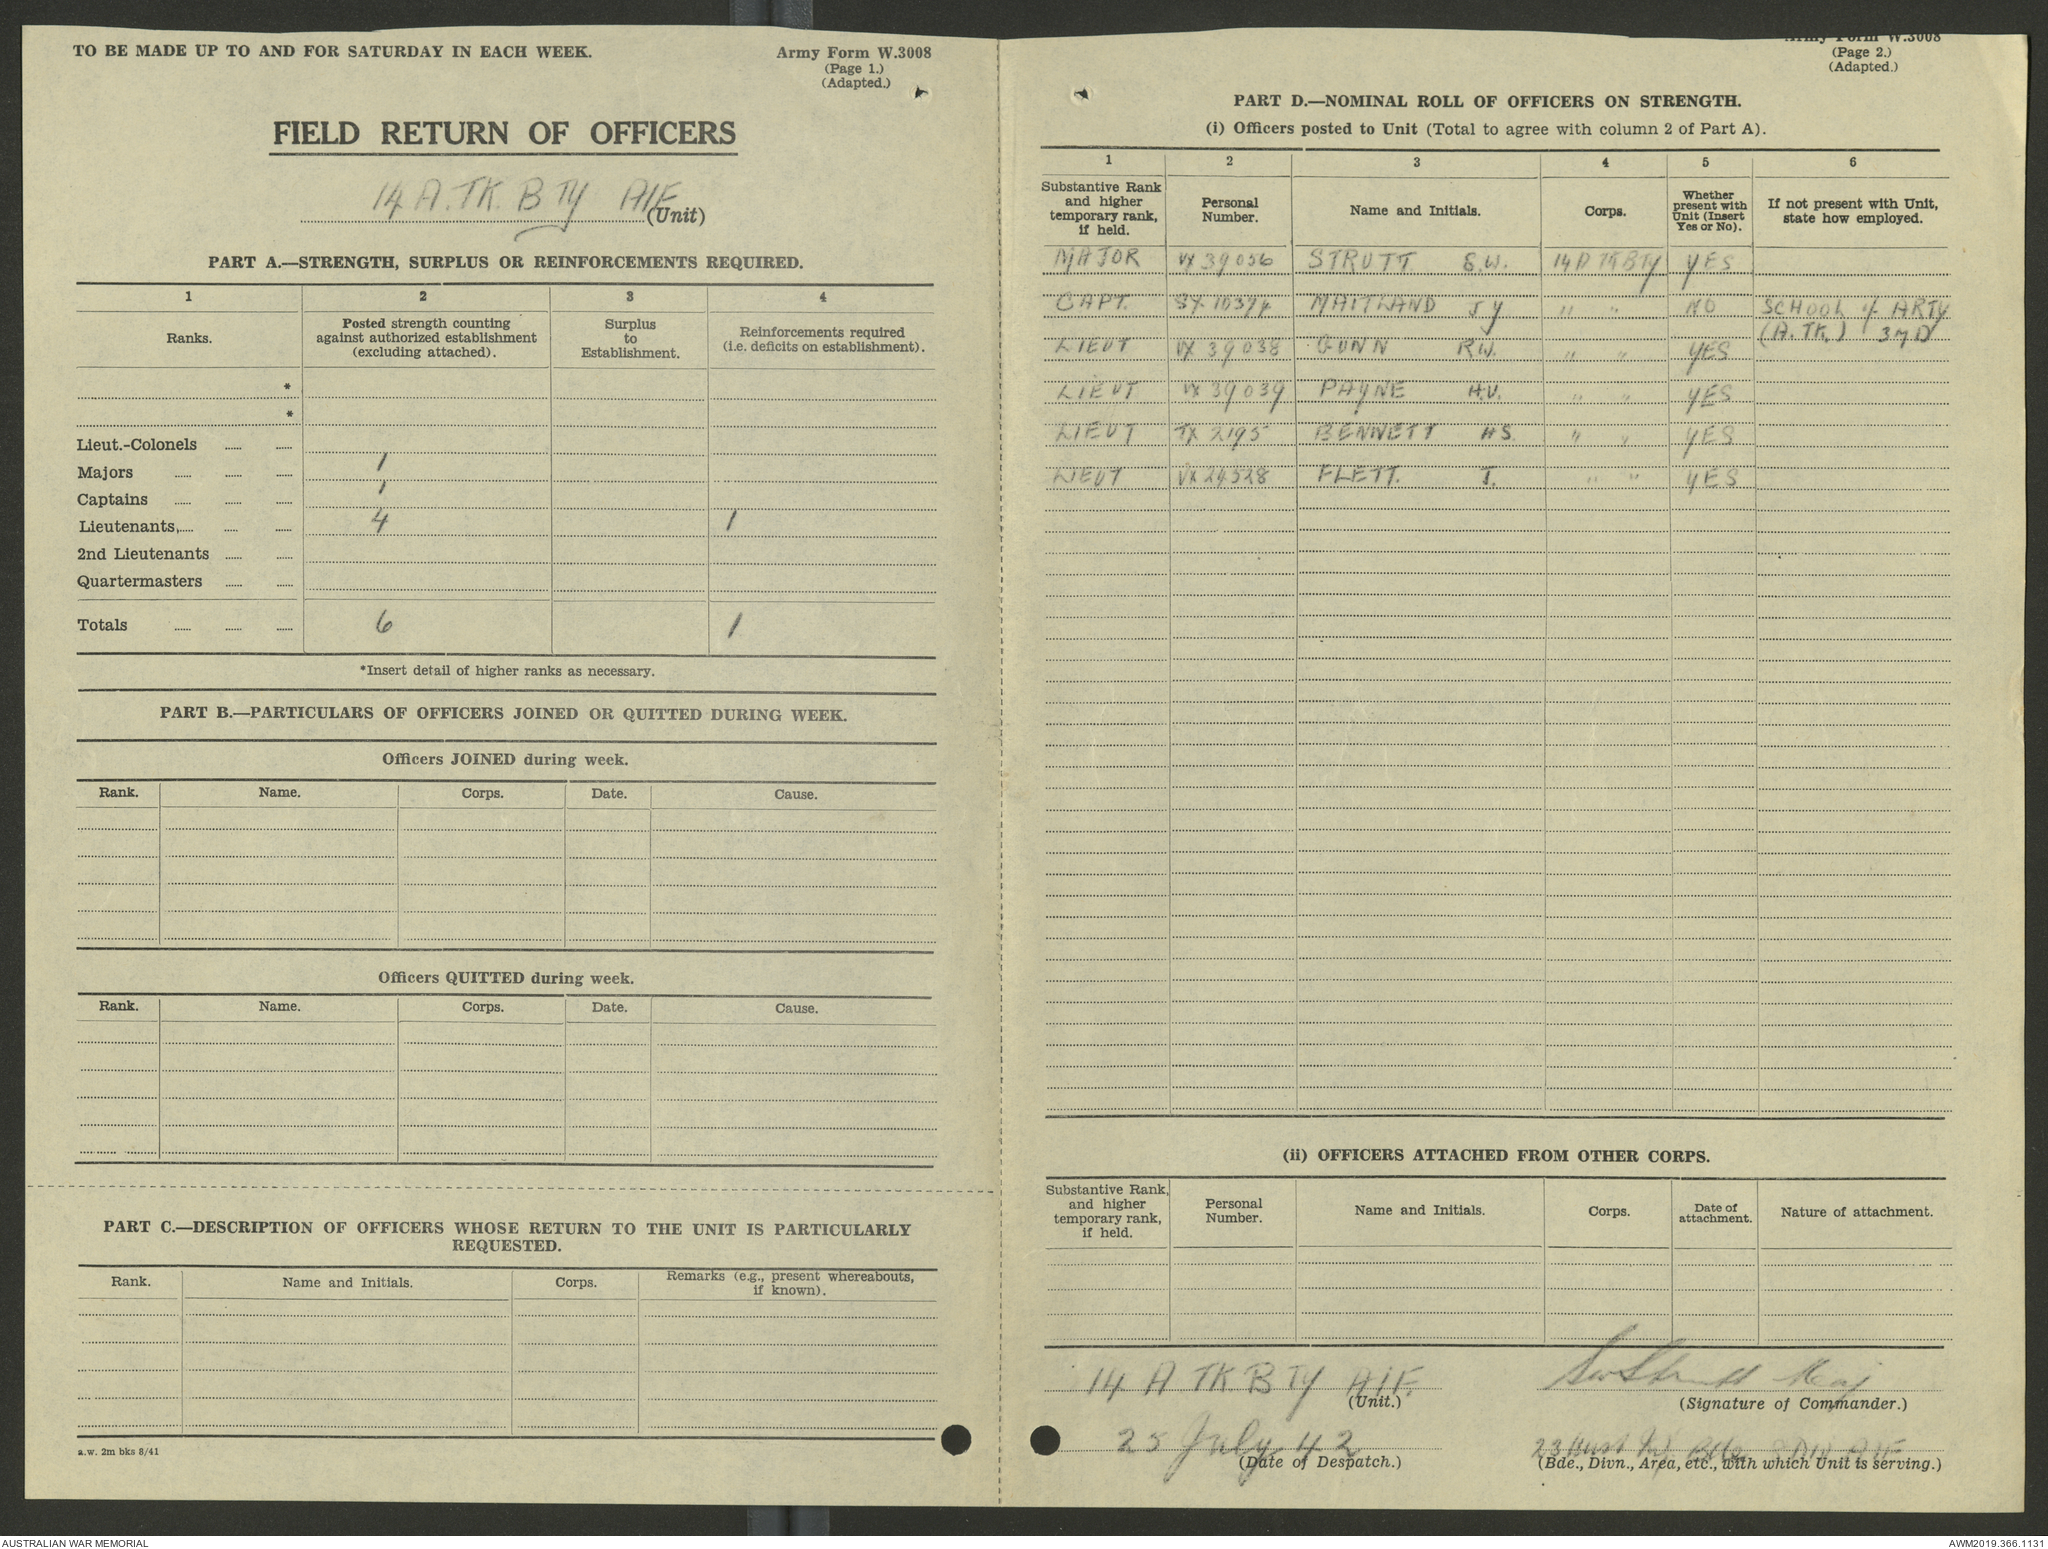 TO BE MADE UP TO AND FOR SATURDAY IN EACH WEEK.
Army Form W.3008
(Page 1.)
(Adapted.)
FIELD RETURN OF OFFICERS
14 A.TK. BTY AIF
(Unit)
PART A.—STRENGTH, SURPLUS OR REINFORCEMENTS REQUIRED.
1 2 3 4
Ranks. Posted strength counting against authorized establishment (excluding attached). Surplus to Establishment. Reinforcements required (i.e. deficits on establishment).
*
*
Lieut.-Colonels ..... .....
Majors ..... ..... ..... 1
Captains ..... ..... ..... 1
Lieutenants, ..... ..... ..... 4 1
2nd Lieutenants ..... .....
Quartermasters ..... .....
Totals ..... ..... ..... 6 1
*Insert detail of higher ranks as necessary.
PART B.—PARTICULARS OF OFFICERS JOINED OR QUITTED DURING WEEK.
Officers JOINED during week.
Rank. Name. Corps. Date. Cause.
Officers QUITTED during week.
Rank. Name. Corps. Date. Cause.
PART C.—DESCRIPTION OF OFFICERS WHOSE RETURN TO THE UNIT IS PARTICULARLY
REQUESTED.
Rank. Name and Initials. Corps. Remarks (e.g., present whereabouts, if known).
a.w. 2m bks 8/41
Army Form W.3008
(Page 2.)
(Adapted.)
PART D.—NOMINAL ROLL OF OFFICERS ON STRENGTH.
(i) Officers posted to Unit (Total to agree with column 2 of Part A).
1 2 3 4 5 6
Substantive Rank and higher temporary rank, if held. Personal Number. Name and Initials. Corps. Whether present with Unit (Insert Yes or No). If not present with Unit, state how employed.
MAJOR VX 39056 STRUTT S.W. 14 A TK BTY YES
CAPT. SX 10374 MAITLAND J Y " " NO SCHOOL of ARTY
(A. TK.) 3 MD
LIEUT VX 39038 GUNN R.W. " " YES
LIEUT VX 39039 PAYNE H.V. " " YES
LIEUT TX 2195 BENNETT H S. " " YES
LIEUT VX 24528 FLETT. J. " " YES
(ii) OFFICERS ATTACHED FROM OTHER CORPS.
Substantive Rank, and higher temporary rank, if held. Personal Number. Name and Initials. Corps. Date of attachment. Nature of attachment.
14 A TK BTY A.I.F.
(Unit.)
SW Strutt Maj
(Signature of Commander.)
25 July 42
(Date of Despatch.)
23 Aust Inf Bde 8 DIV AIF
(Bde., Divn., Area, etc., with which Unit is serving.)
AUSTRALIAN WAR MEMORIAL
AWM2019.366.1131